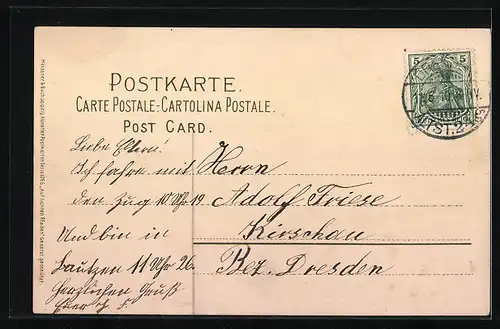 POSTKARTE.
CARTE POSTALE-CARTOLINA POSTALE.
POST CARD.
5 5
Liebe Eltern!
Ich fahre mit
den Zug 10 Uhr 19
Und bin in
Bautzen 11 Uhr 26.
Herzlichen Gruß
Euer
Herrn
Adolf Friese
Kirschau
Bez. Dresden